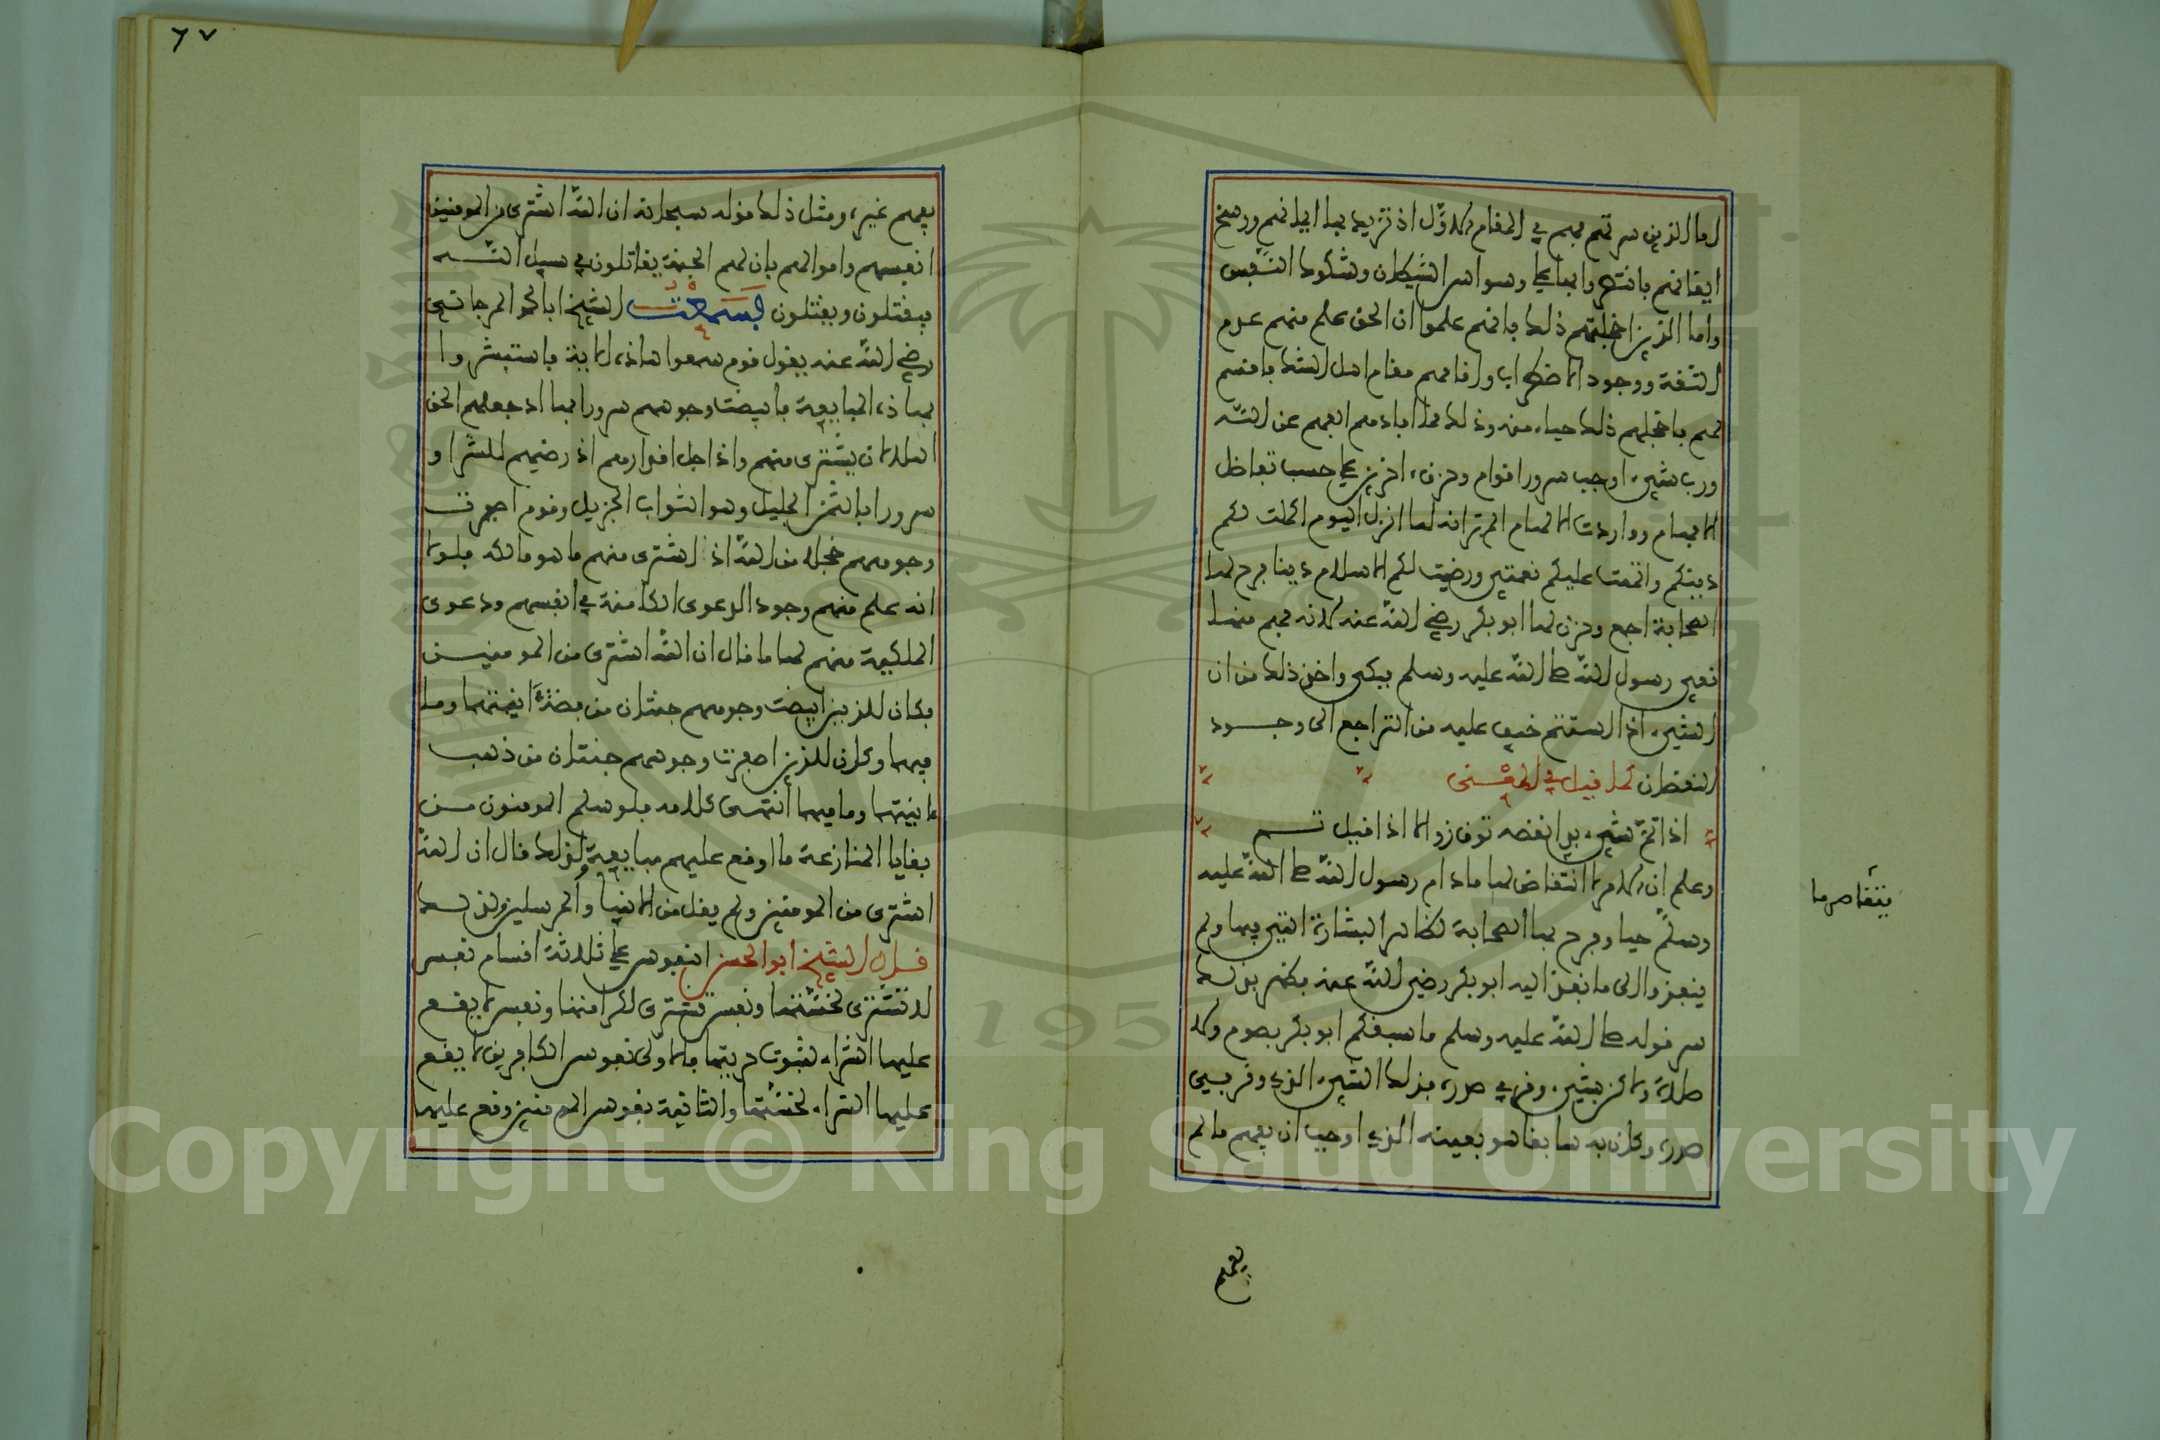 اما الذين سرتهم فهم في المقام الاول اذ تزيد بها ايمانهم ورسخ
ايقانهم فانتصروا بها على وسواس الشيطان وشكوك النفس
واما الذين اخجلتهم ذلك فانهم علموا ان الحق علم منهم عدم
الثقة ووجود الاضطراب واقامهم مقام اهل الشك فاقسم
لهم فاخجلهم ذلك حياء منه وذلك مما افادهم الفهم عن الله
ورب شيء اوجب سرور اقوام وحزن اخرين على حسب تفاضل
الافهام وواردات الالهام الم تر انه لما انزل اليوم اكملت لكم
دينكم واتممت عليكم نعمتي ورضيت لكم الاسلام دينا فرح لها
الصحابة اجمع وحزن لها ابو بكر رضي الله عنه لانه فهم منها
نعي رسول الله صلى الله عليه وسلم فبكى واخذ ذلك من ان
الشيء اذا استتم خيف عليه من التراجع الى وجود
النقصان كما قيل في المعنى
اذا تم شيء بدا نقصه توق زوالا اذا قيل تم
وعلم ان الامر لا انتقاض لها ما دام رسول الله صلى الله عليه
وسلم حيا وفرح بها الصحابة لظاهر البشارة التي فيها ولم
ينفذوا الى ما نفذ اليه ابو بكر رضي الله عنه فظهر بذلك
سر قوله صلى الله عليه وسلم ما سبقكم ابو بكر بصوم ولا
صلاة ولكن بشيء وقر في صدره فذلك الشيء الذي وقر في
صدره وكان به سابقا هو بعينه الذي اوجب ان يفهم ما لم
يفهم
يفهم غيره ومثل ذلك قوله سبحانه ان الله اشترى من المومنين
انفسهم واموالهم بان لهم الجنة يقاتلون في سبيل الله
فيقتلون ويقتلون فسمعت الشيخ ابا محمد المرجاني
رضي الله عنه يقول قوم سمعوا هاذه الاية فاستبشروا
بهاذه المبايعة فابيضت وجوههم سرورا بها اذ جعلهم الحق
اهلا ان يشترى منهم واذ اجل اقدارهم اذ رضيهم للشرا و
سرورا بالثمن الجليل وهو الثواب الجزيل وقوم اصفرت
وجوههم خجلا من الله اذ اشترى منهم ما هو مالكه فلولا
انه علم منهم وجود الدعوى الكامنة في انفسهم ودعوى
الملكية منهم لها ما قال ان الله اشترى من المومنين
فكان للذين ابيضت وجوههم جنتان من فضة انيتهما وما
فيهما وكان للذين اصفرت وجوههم جنتان من ذهب
انيتهما وما فيهما انتهى كلامه فلو سلم المومنون من
بقايا المنازعة ما اوقع عليهم مبايعة ولذلك قال ان الله
اشترى من المومنين ولم يقل من الانبيا والمرسلين ولذلك
قال الشيخ ابو الحسن النفوس على ثلاثة اقسام نفس
لا تشترى لخستها ونفس تشترى لكرامتها ونفس لا يقع
عليها الشراء لثبوت حريتها فالاولى نفوس الكافرين لا يقع
عليها الشراء لخستها والثانية نفوس المومنين وقع عليها